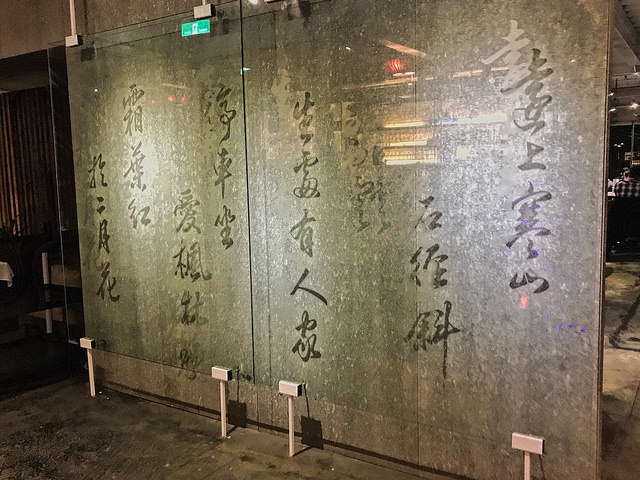 遠上寒山
石徑斜
白雲
生處有人家
停車坐
愛楓林晚
霜葉紅
於二月花